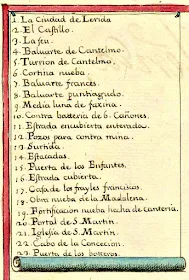 1. La Ciudad de Lerida
2. El Castillo.
3. La seu.
4. Baluarte de Cantelmo.
5. Turrion de Cantelmo.
6. Cortina nueba.
7. Baluarte frances.
8. Baluarte puntiagudo.
9. Media luna de faxina.
10. Contra bateria de 6. Cañones.
11. Estrada encubierta enterrada.
12. Pozos para contra mina.
13. Surtida.
14. Estacadas.
15. Puerta de los Enfantes.
16. Estrada cubierta.
17. Casa de frayles franciscos.
18. Obra nueba de la Madalena.
19. Fortificacion nueba hecha de canteria.
20. Portal de S. Martin.
21. Iglesia de S. Martin.
22. Cabo de la Concecion.
23. Puerta de los boteros.